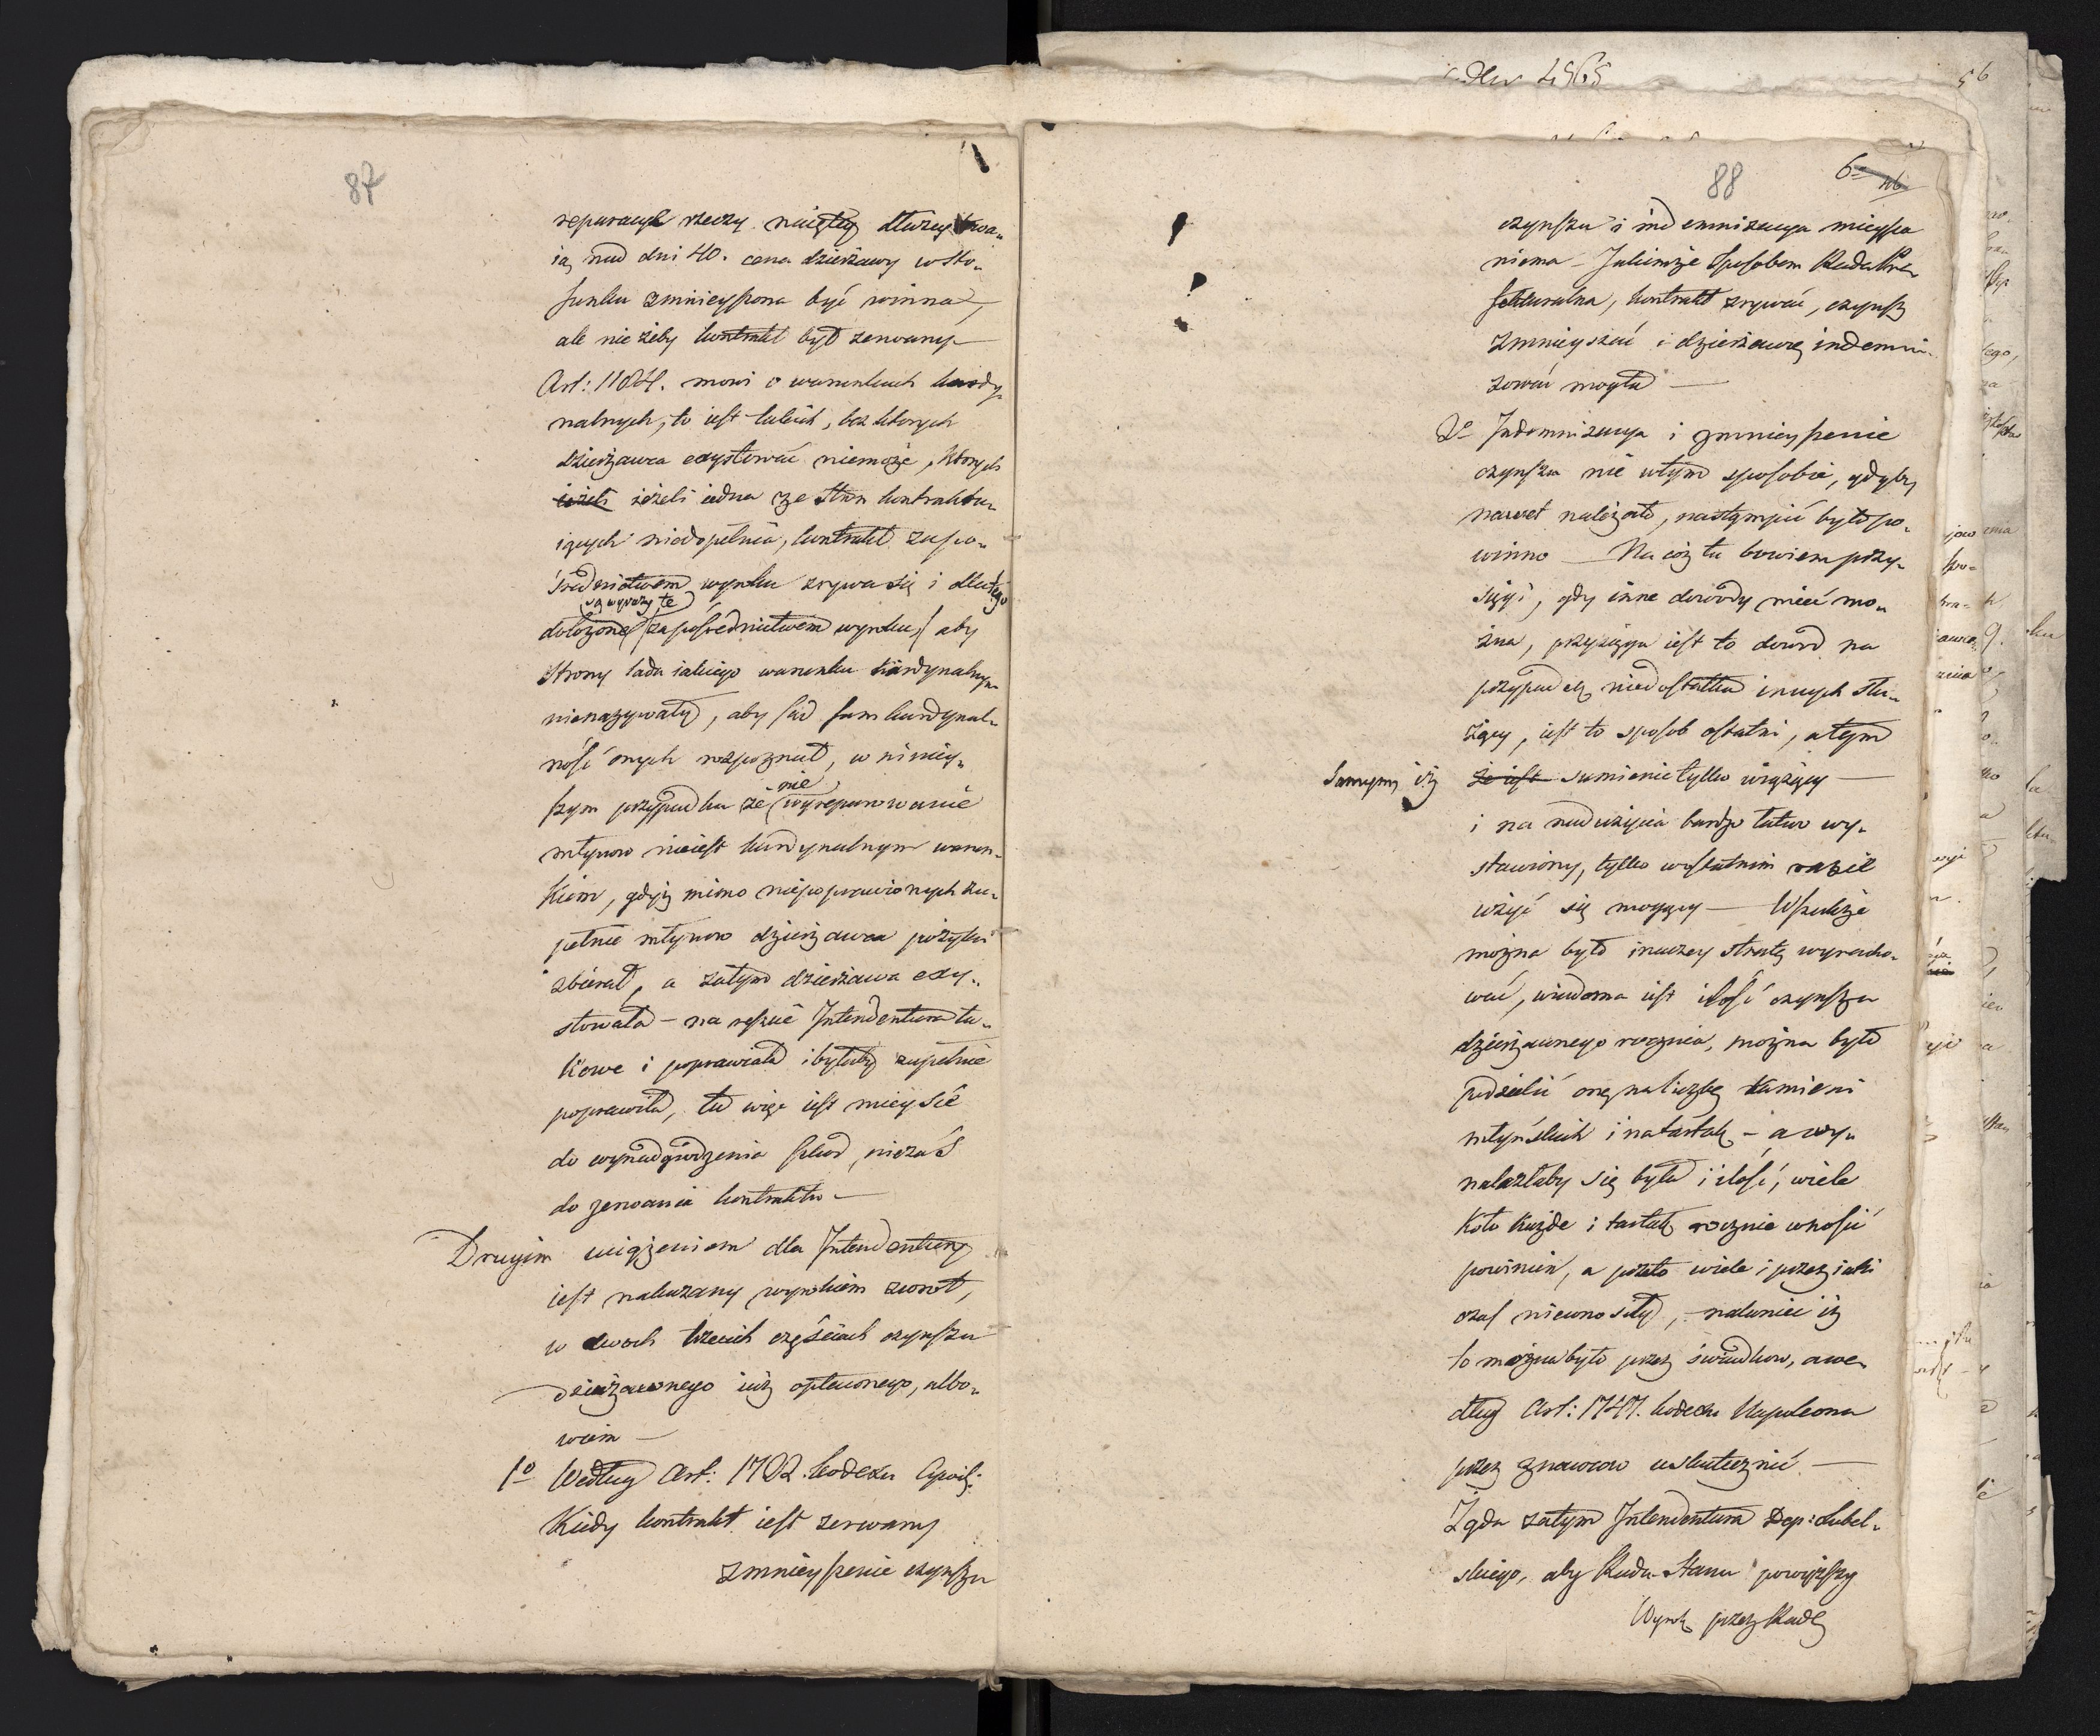 87
reparacye rzeczy naiętey dłużey trwa„
ią nad dni 40. cena dzierżawy w sto„
sunku zmnieyszona być winna —
ale nie żeby kontrakt był zerwany —
Art: 1184. mowi o warunkach kardy„
nalnych, to iest takich, bez ktorych
dzierżawca exystować niemoże, ktorych
ieżeli ieżeli iedna ze stron kontraktu„
iących niedopełnia, kontrakt za po„
średnictwem wyroku zrywa się i dlatego
są wyrazy te
dołożone (za pośrednictwem wyroku) aby
Strony lada iakiego warunku kardynalnym
nienazywały, aby sąd sam kardynal„
ność onych rozpoznał, w niniey„
nie
szym przypadku że wyreparowanie
młynow nieiest kardynalnym warun„
kiem, gdyż mimo niepoprawionych zu„
pełnie młynow dzierżawca pożytki
zbierał, a zatym dzierżawa exy„
stowała — na reszcie Intendentura ta„
kowe i poprawiała i byłaby zupełnie
poprawiła, tu więc iest mieysce
do wynadgrodzenia szkod, niezaś
do zerwania kontraktu —
Drugim uciążeniem dla Intendentury
iest nakazany wyrokiem zwrot,
w dwoch trzecich częściach czynszu
dzierżawnego iuż opłaconego, albo„
wiem —
1º Według Art: 1722. kodexu Cywil:
Kiedy kontrakt iest zerwany
zmnieyszenie czynszu
88
6
czynszu i indemnizacya mieysca
niema — Jakimże sposobem Rada Pre„
fekturalna, kontrakt zrywać, czynsz
zmnieyszać i dzierżawcę indemni„
zować mogła —
2º Indemnizacya i zmnieyszenie
czynszu nie w tym sposobie, gdyby
nawet należało, nastąpić było po„
winno — Na coż tu bowiem przy„
sięgi, gdy inne dowody mieć mo„
żna, przysięga iest to dowod na
przypadek niedostatku innych słu„
żący, iest to sposob ostatni, a tym
samym iż że iest sumienie tylko wiążący —
i na nadużycia bardzo łatwo wy„
stawiony, tylko w ostatnim razie
użyć się mogący — Wszakże
można było inaczey stratę wyracho„
wać, wiadoma iest ilość czynszu
dzierżawnego rocznia, można było
podzielić onę na liczbę kamieni
młyńskich i na tartak — a wy„
nalazłaby się była i ilość, wiele
koło każde i tartak rocznie wnosić
powinien, a przeto wiele i przez iaki
czas niewnosiły, — nakoniec iż
to można było przez świadkow, a we„
dług Art: 1747. kodexu Napoleona
przez znawcow uskutecznić —
Żąda zatym Intendentura Dep: Lubel„
skiego, aby Rada Stanu powyższy
Wyrok przez Radę